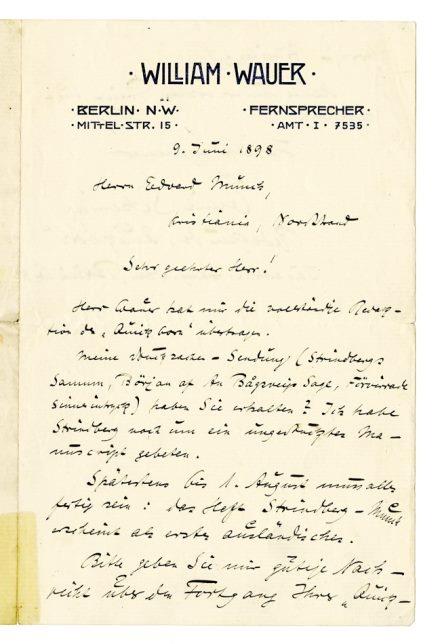 · WILLIAM · WAUER ·
· BERLIN · N·W·
· MITTEL·STR. 15 ·
· FERNSPRECHER ·
· AMT · I · 7535 ·
9. Juni 1898
Herrn Edvard Munch,
Kristiania, Nordstrand
Sehr geehrter Herr!
Herr Wauer hat mir die vollständige Redak-
tion des „Quickborn" übertragen.
Meine Drucksachen-Sendung (Strindbergs
Samum, Början af Ån Bogsveigs Saga, Förvirrade
Sinnesintryck) haben Sie erhalten? Ich habe
Strindberg noch um ein ungedrucktes Ma-
nuscript gebeten.
Spätestens bis 1. August muss alles
fertig sein: das Heft Strindberg-Munch
erscheint als erstes ausländisches.
Bitte geben Sie mir gütige Nach-
richt über den Fortgang Ihrer „Quick-